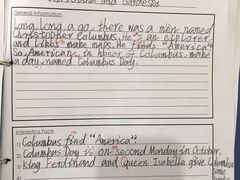 and
General Information
Long, long ago, there was a men named
Christopher Columbus. He is an explorer
and Likes make maps. He finds "America"
so, Americans, in honor of Columbus, make
a day, named Columbus Day.
Interesting Facts
1) Columbus find "America"
2) Columbus Day is on Second Monday in October.
3) King Ferdinand and queen Isabella give Columbus